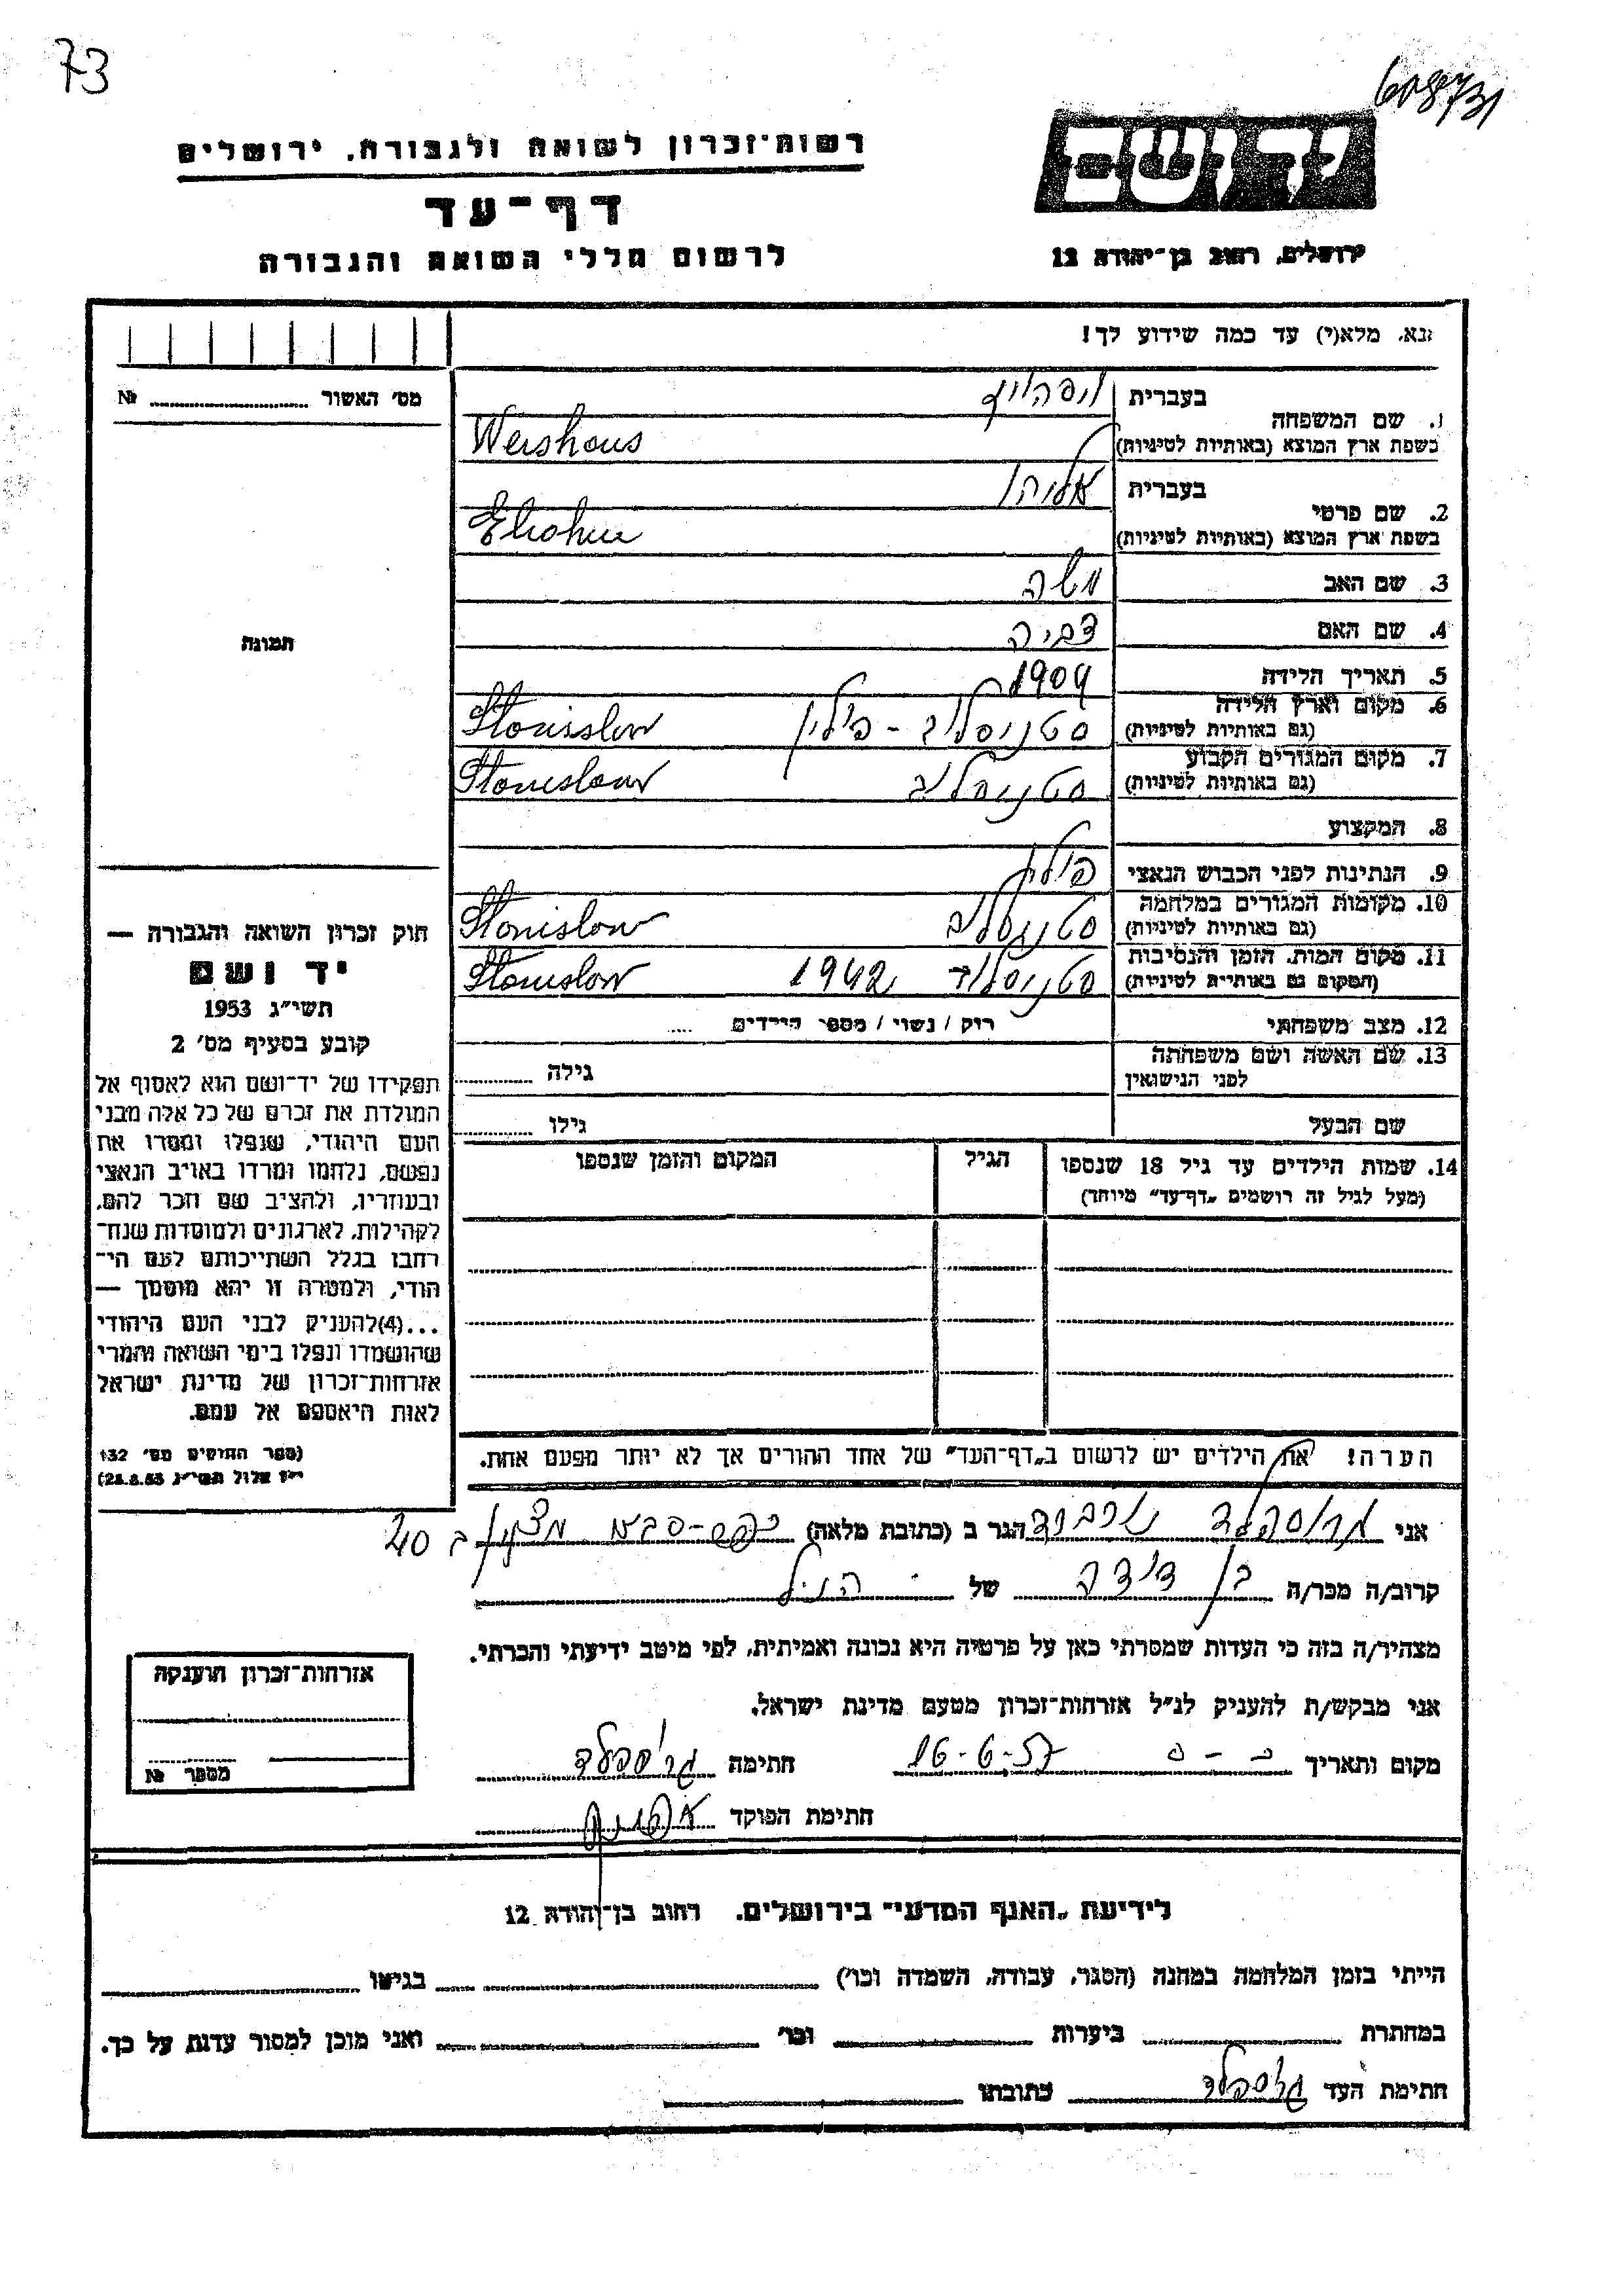 73
608731
רשות־זכרון לשואה ולגבורה, ירושלים
יד ושם
דף־עד
לרשום חללי השואה והגבורה
ירושלים, רחוב בן־יהודה 12
נא, מלא(י) עד כמה שידוע לך!
מס' האשור № 
1. שם המשפחה
בעברית
בשפת ארץ המוצא (באותיות לטיניות) Weishaus
2. שם פרטי
בעברית אליהו
בשפת ארץ המוצא (באותיות לטיניות) Eliahu
3. שם האב משה
4. שם האם צביה
תמונה
5. תאריך הלידה 1904
6. מקום וארץ הלידה (גם באותיות לטיניות) סטניסלוב - פולין Stanislaw
7. מקום המגורים הקבוע (גם באותיות לטיניות) סטניסלוב Stanislaw
8. המקצוע
9. הנתינות לפני הכבוש הנאצי פולין
10. מקומות המגורים במלחמה (גם באותיות לטיניות) סטניסלוב Stanislow
11. מקום המות, הזמן והנסיבות (המקום גם באותיות לטיניות) סטניסלוב 1942 Stanislow
12. מצב משפחתי רוק / נשוי / מספר הילדים
13. שם האשה ושם משפחתה לפני הנישואין גילה
שם הבעל גילו
14. שמות הילדים עד גיל 18 שנספו (מעל לגיל זה רושמים „דף־עד" מיוחד)
הגיל
המקום והזמן שנספו
חוק זכרון השואה והגבורה —
יד ושם
תשי"ג 1953
קובע בסעיף מס' 2
תפקידו של יד־ושם הוא לאסוף אל
המולדת את זכרם של כל אלה מבני
העם היהודי, שנפלו ומסרו את
נפשם, נלחמו ומרדו באויב הנאצי
ובעוזריו, ולהציב שם וזכר להם,
לקהילות, לארגונים ולמוסדות שנח־
רבו בגלל השתייכותם לעם הי־
הודי, ולמטרה זו יהא מוסמך —
...(4) להעניק לבני העם היהודי
שהושמדו ונפלו בימי השואה והמרי
אזרחות־זכרון של מדינת ישראל
לאות היאספם אל עמם.
(ספר החוקים מס' 132
י"ז אלול תשי"ג 28.8.53)
הערה! את הילדים יש לרשום ב„דף־העד" של אחד ההורים אך לא יותר מפעם אחת.
אני הגר ב (כתובת מלאה) כפר-סבא 40
קרוב/ה מכר/ה בן דודה של הנ"ל
מצהיר/ה בזה כי העדות שמסרתי כאן על פרטיה היא נכונה ואמיתית, לפי מיטב ידיעתי והכרתי.
אני מבקש/ת להעניק לנ"ל אזרחות־זכרון מטעם מדינת ישראל.
מקום ותאריך כ-ס 16-6-57 חתימה
חתימת הפוקד
אזרחות־זכרון הוענקה
מספר №
לידיעת „האגף המדעי" בירושלים. רחוב בן־יהודה 12
הייתי בזמן המלחמה במחנה (הסגר, עבודה, השמדה וכו') בגיטו
במחתרת ביערות וכו' ואני מוכן למסור עדות על כך.
חתימת העד כתובתו